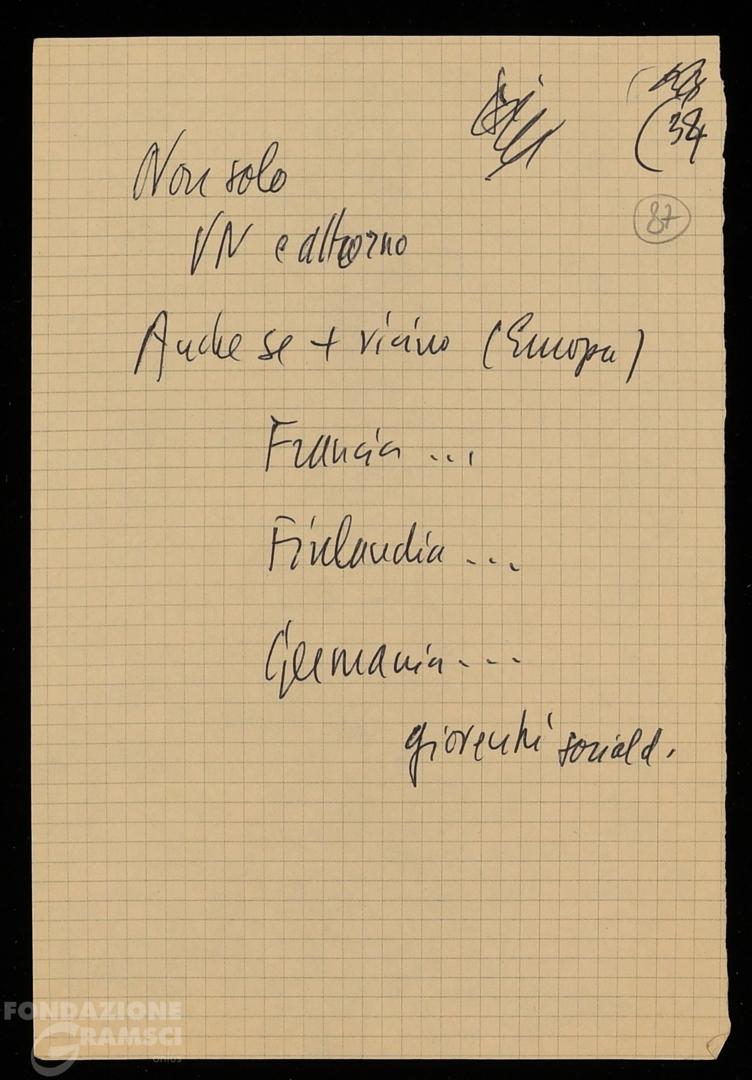 (34
87
Non solo
VN e attorno
Anche se + vicino (Europa)
Francia ...
Finlandia ...
Germania ...
gioventù sociald.
FONDAZIONE
GRAMSCI
onlus